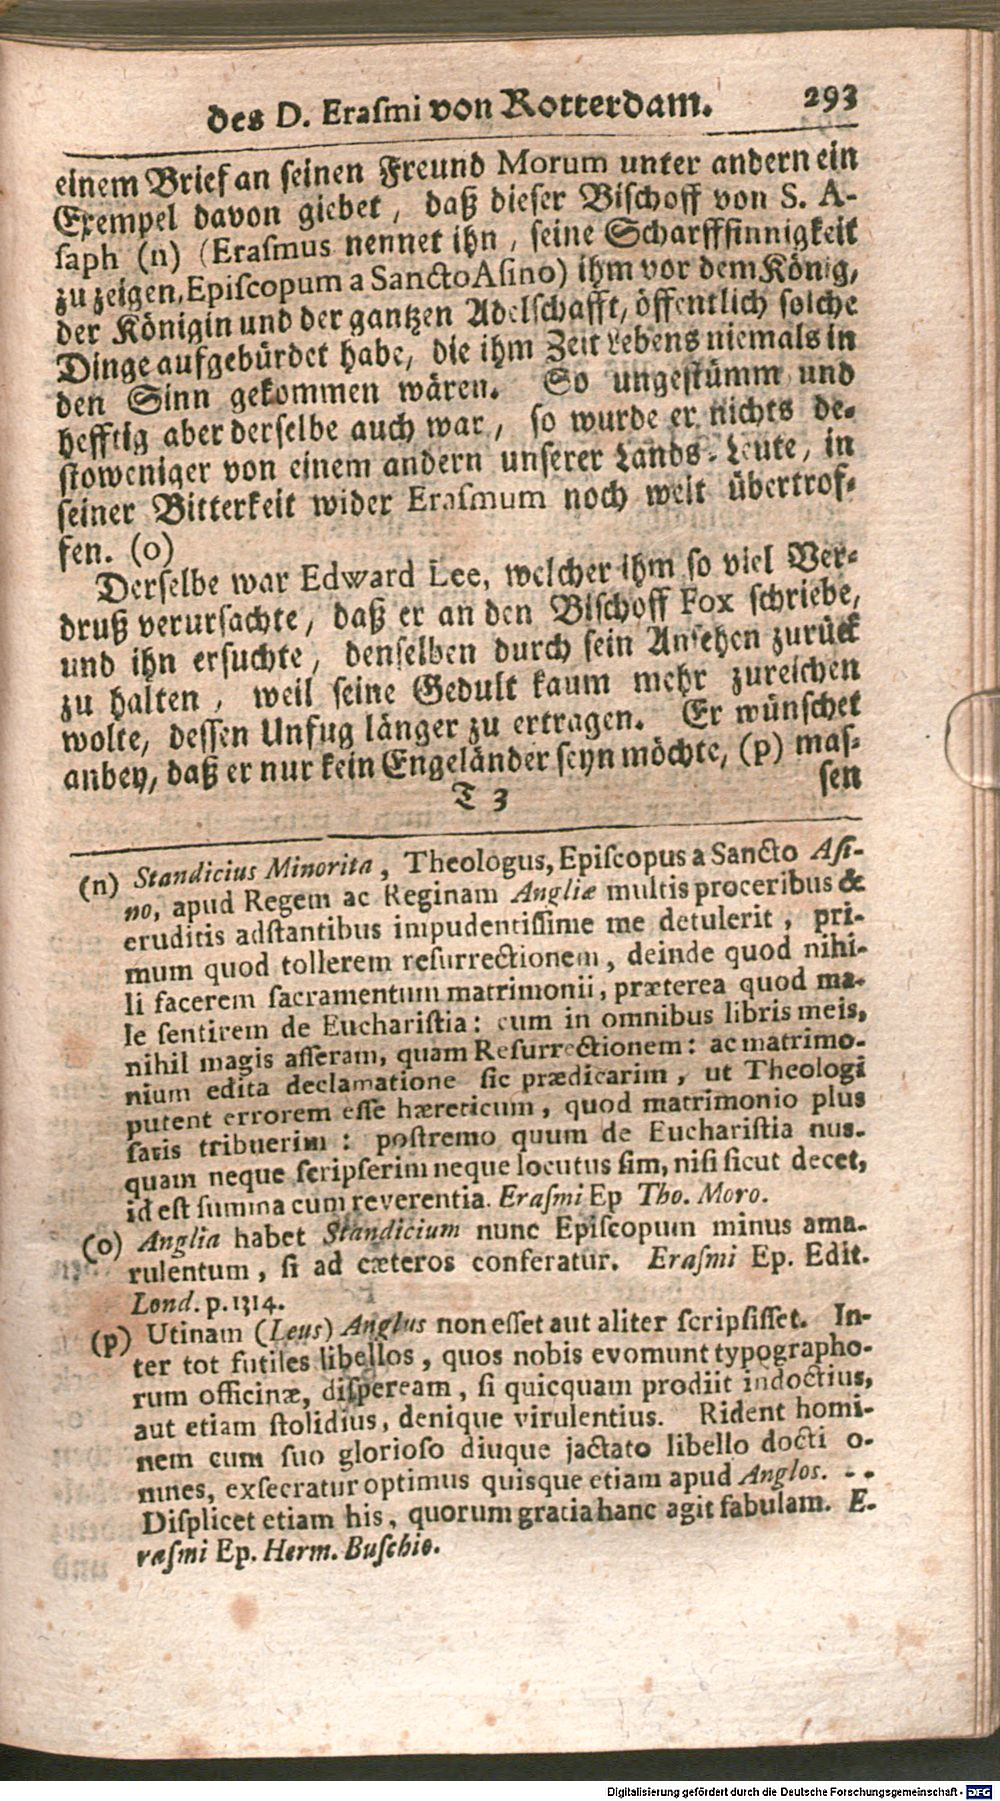 des D. Eraſmi von Rotterdam. 293
einem Brief an ſeinen Freund Morum unter andern ein
Exempel davon giebet, daß dieſer Biſchoff von S. A-
ſaph (n) (Eraſmus nennet ihn, ſeine Scharffſinnigkeit
zu zeigen, Epiſcopum a Sancto Aſino) ihm vor dem König,
der Königin und der gantzen Adelſchafft, öffentlich ſolche
Dinge aufgebürdet habe, die ihm Zeit Lebens niemals in
den Sinn gekommen wären. So ungeſtümm und
hefftig aber derſelbe auch war, ſo wurde er nichts de-
ſtoweniger von einem andern unſerer Lands-Leute, in
ſeiner Bitterkeit wider Eraſmum noch weit übertrof-
fen. (o)
Derſelbe war Edward Lee, welcher ihm ſo viel Ver-
druß verurſachte, daß er an den Biſchoff Fox ſchriebe,
und ihn erſuchte, denſelben durch ſein Anſehen zurück
zu halten, weil ſeine Gedult kaum mehr zureichen
wolte, deſſen Unfug länger zu ertragen. Er wünſchet
anbey, daß er nur kein Engeländer ſeyn möchte, (p) maſ-
T 3 ſen
(n) Standicius Minorita, Theologus, Epiſcopus a Sancto Aſi-
no, apud Regem ac Reginam Angliæ multis proceribus &
eruditis adſtantibus impudentiſſime me detulerit, pri-
mum quod tollerem reſurrectionem, deinde quod nihi-
li facerem ſacramentum matrimonii, præterea quod ma-
le ſentirem de Euchariſtia: cum in omnibus libris meis,
nihil magis aſſeram, quam Reſurrectionem: ac matrimo-
nium edita declamatione ſic prædicarim, ut Theologi
putent errorem eſſe hæreticum, quod matrimonio plus
ſatis tribuerim: poſtremo quum de Euchariſtia nus-
quam neque ſcripſerim neque locutus ſim, niſi ſicut decet,
id eſt ſumma cum reverentia. Eraſmi Ep Tho. Moro.
(o) Anglia habet Standicium nunc Epiſcopum minus ama-
rulentum, ſi ad cæteros conferatur. Eraſmi Ep. Edit.
Lond. p. 1314.
(p) Utinam (Leus) Anglus non eſſet aut aliter ſcripſiſſet. In-
ter tot futiles libellos, quos nobis evomunt typographo-
rum officinæ, diſpeream, ſi quicquam prodiit indoctius,
aut etiam ſtolidius, denique virulentius. Rident homi-
nem cum ſuo glorioſo diuque jactato libello docti o-
mnes, exſecratur optimus quisque etiam apud Anglos. - -
Diſplicet etiam his, quorum gratia hanc agit fabulam. E-
raſmi Ep. Herm. Buſchio.
Digitalisierung gefördert durch die Deutsche Forschungsgemeinschaft - DFG